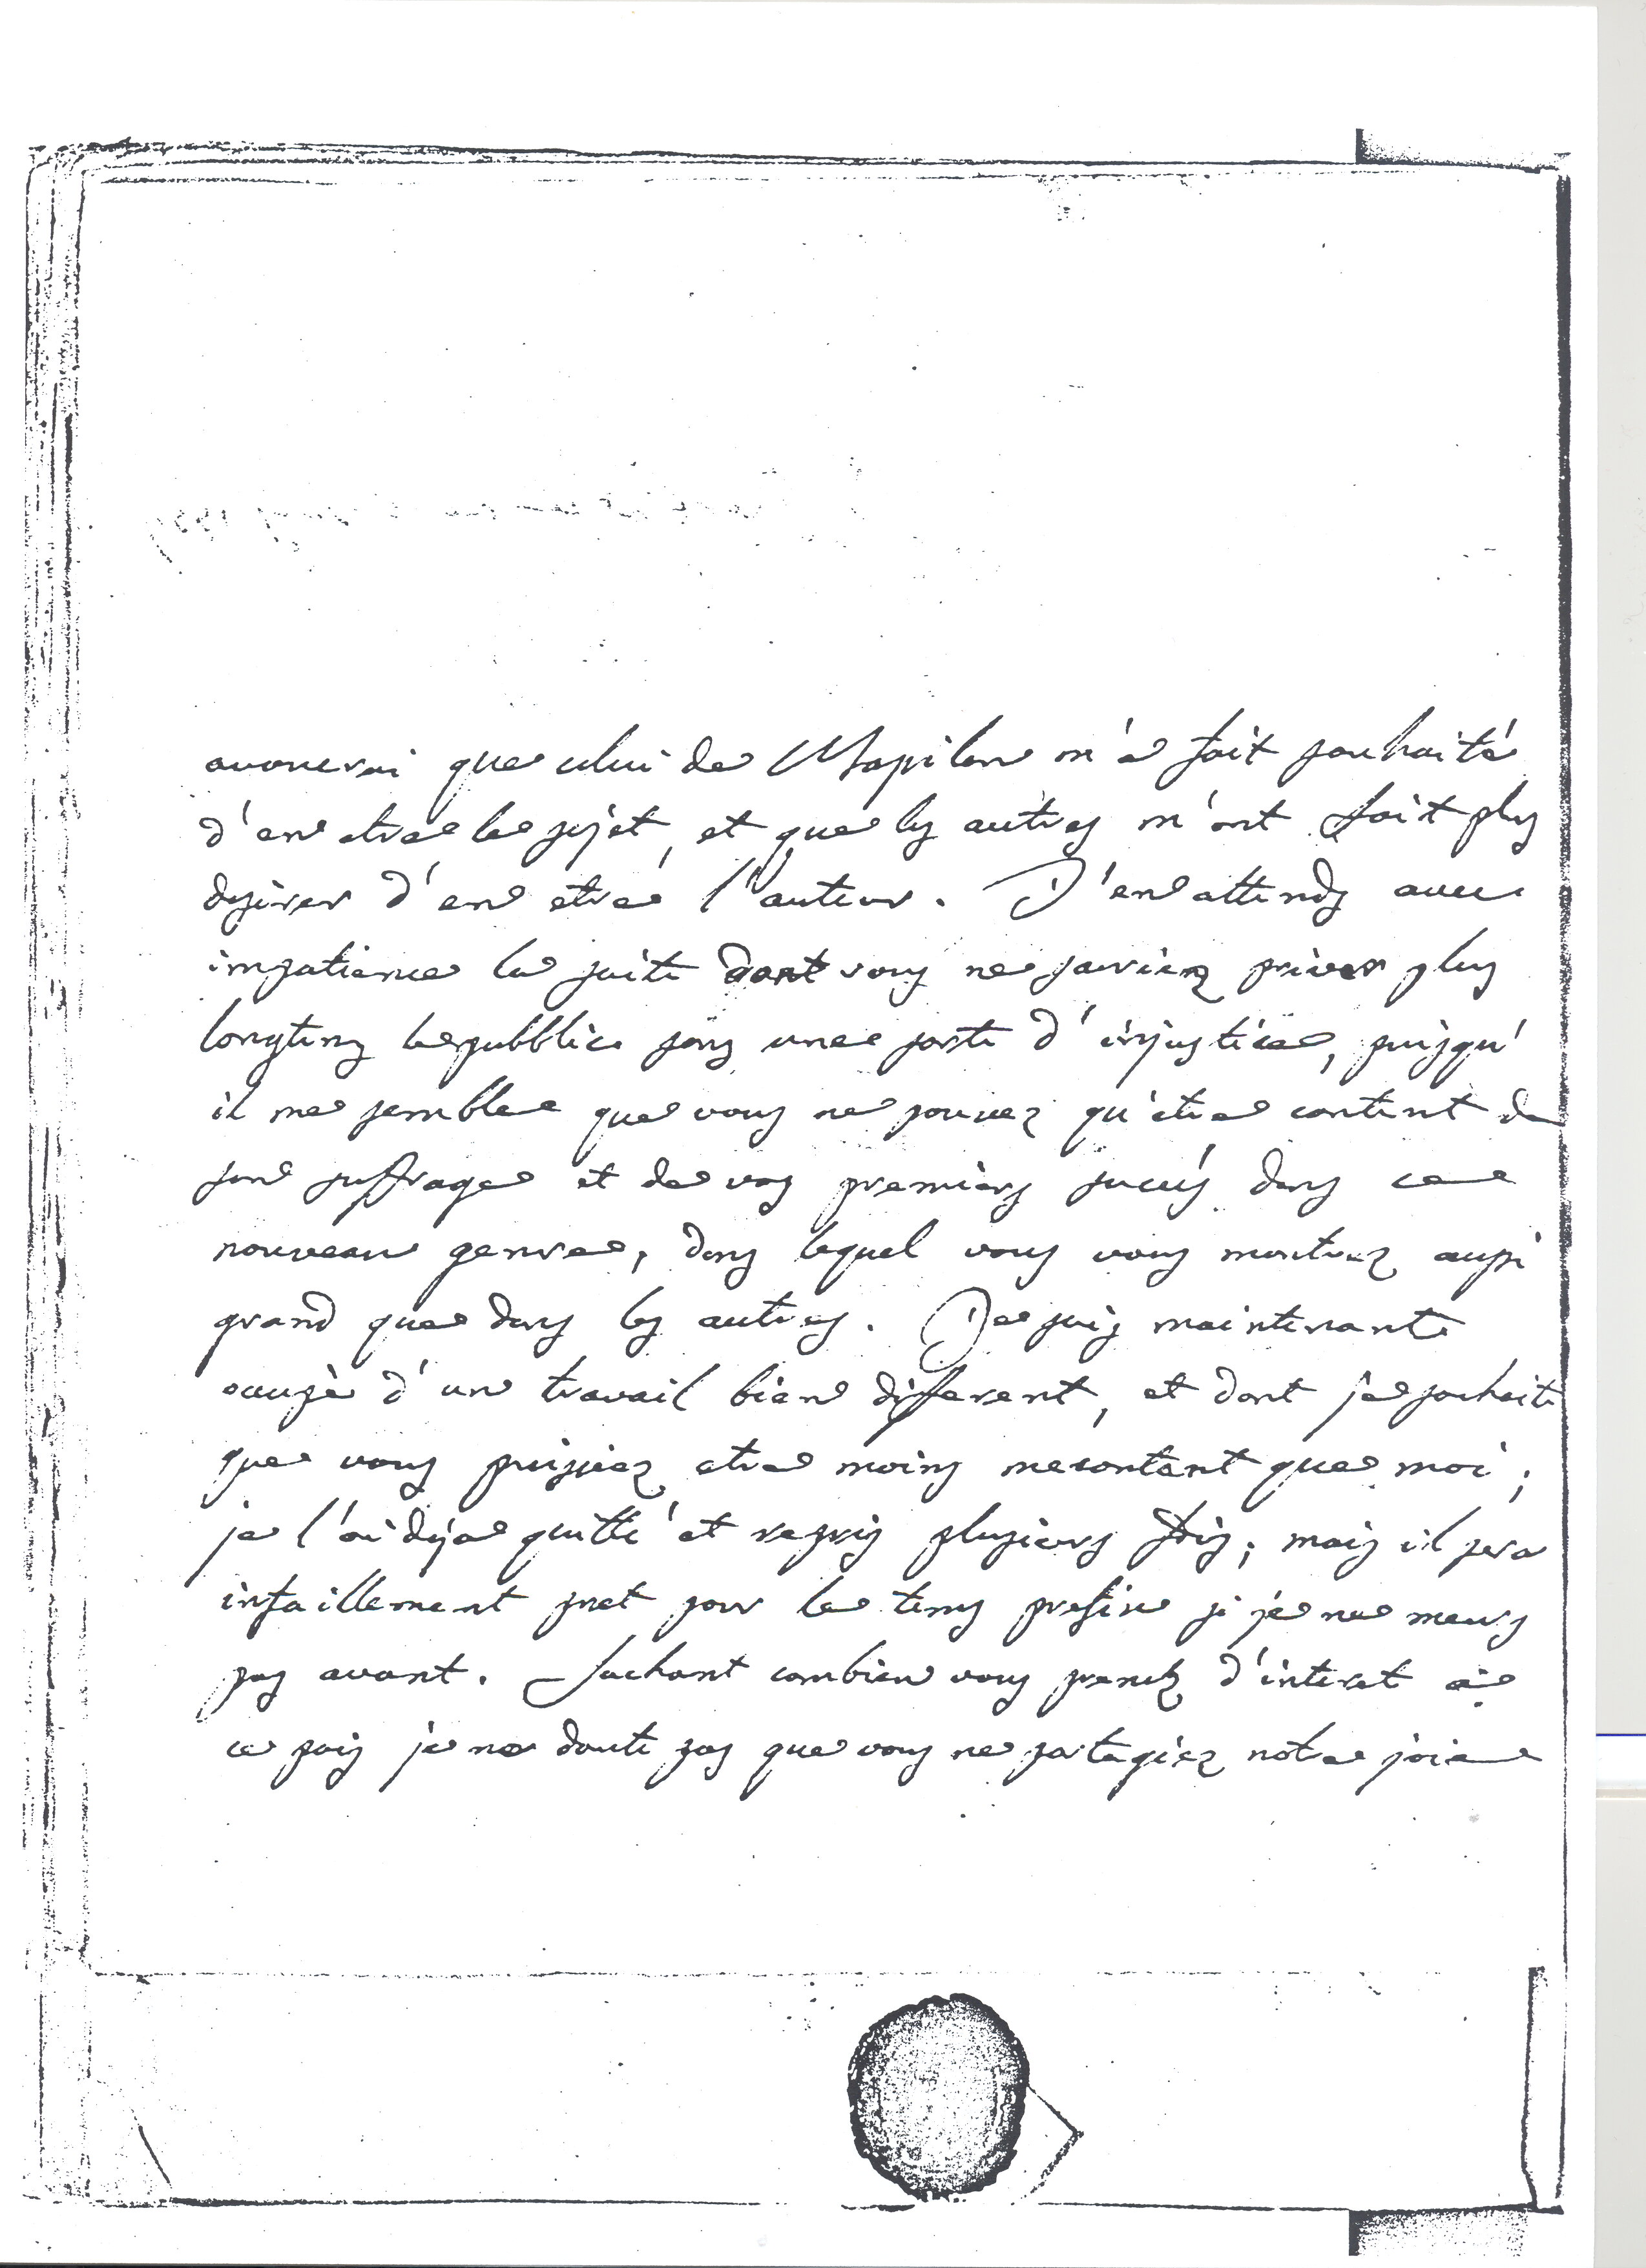 avouerai que celui de Massilon m'a fait souhaité
d'en etre le sujet, et que les autres m'ont fait plus
desirer d'en etre l'auteur. J'en attends avec
impatience la suite dont vous ne sauriez priver plus
longtems le pubblic sans une sorte d'injustice, puisqu'
il me semble que vous ne pouvez qu'etre content de
son suffrage et de vos premiers succés dans ce
nouveau genre, dans lequel vous vous montrez aussi
grand que dans les autres. Je suis maintenant
occupé d'un travail bien different, et dont je souhaite
que vous puissiez etre moins mecontent que moi;
je l'ai deja quitté et repris plusieurs fois; mais il sera
infaillement pret pour le tems prefix si je ne meurs
pas avant. Sachant combien vous prenez d'interet a
ce pais je ne doute pas que vous ne partagiez notre joie